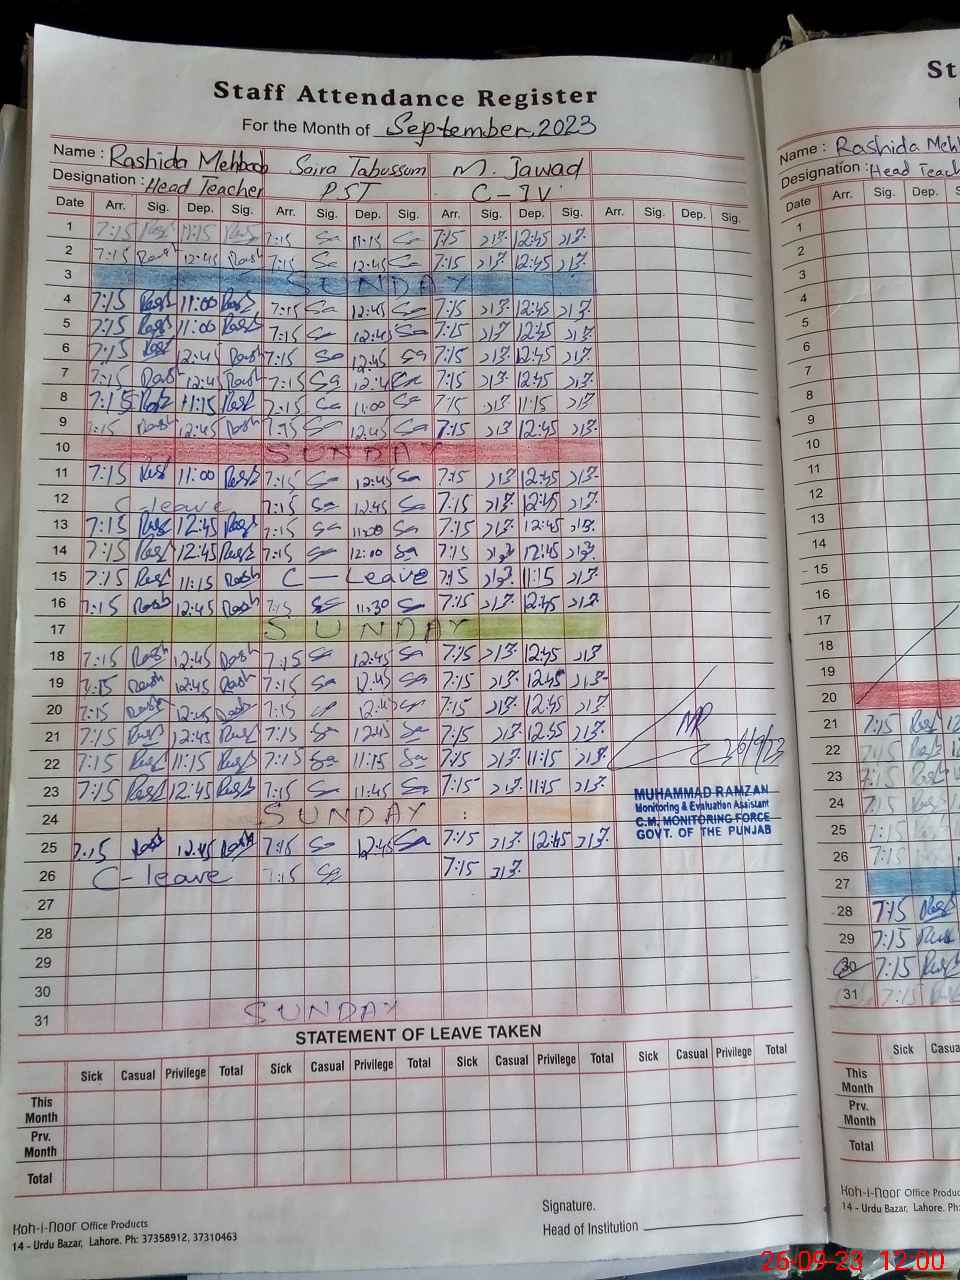 Staff Attendance Register
For the Month of September, 2023
Name : Rashida Mehboob Saira Tabussum M. Jawad
Designation : Head Teacher PST C-IV
Date Arr. Sig. Dep. Sig. Arr. Sig. Dep. Sig. Arr. Sig. Dep. Sig. Arr. Sig. Dep. Sig.
1 7:15 11:15 7:15 Sa 11:15 Sa 7:15 12:45
2 7:15 Rash 12:45 Rash 7:15 Sa 12:45 Sa 7:15 12:45
3 SUNDAY
4 7:15 11:00 7:15 Sa 12:45 Sa 7:15 12:45
5 7:15 11:00 7:15 Sa 12:45 Sa 7:15 12:45
6 7:15 12:45 Rash 7:15 Sa 12:45 Sa 7:15 12:45
7 7:15 Rash 12:45 Rash 7:15 Sa 12:45 Sa 7:15 12:45
8 7:15 11:15 7:15 Sa 11:00 Sa 7:15 11:15
9 7:15 Rash 12:45 Rash 7:15 Sa 12:45 Sa 7:15 12:45
10 SUNDAY
11 7:15 11:00 7:15 Sa 12:45 Sa 7:15 12:45
12 C-leave 7:15 Sa 12:45 Sa 7:15 12:45
13 7:15 12:45 7:15 Sa 11:00 Sa 7:15 12:45
14 7:15 12:45 7:15 Sa 12:00 Sa 7:15 12:45
15 7:15 11:15 Rash C-Leave 7:15 11:15
16 7:15 Rash 12:45 Rash 7:15 Sa 11:30 Sa 7:15 12:45
17 SUNDAY
18 7:15 Rash 12:45 Rash 7:15 Sa 12:45 Sa 7:15 12:45
19 7:15 Rash 12:45 Rash 7:15 Sa 12:45 Sa 7:15 12:45
20 7:15 Rash 12:45 Rash 7:15 12:45 7:15 12:45
21 7:15 12:45 7:15 Sa 12:45 Sa 7:15 12:45
22 7:15 11:15 7:15 Sa 11:15 Sa 7:15 11:15
23 7:15 12:45 7:15 Sa 11:45 Sa 7:15 11:45
24 SUNDAY
25 7:15 Rash 12:45 Rash 7:15 Sa 12:45 Sa 7:15 12:45
26 C-leave 7:15 Sa 7:15
27
28
29
30
31 SUNDAY
26/9/23
MUHAMMAD RAMZAN
Monitoring & Evaluation Assistant
C.M. MONITORING FORCE
GOVT. OF THE PUNJAB
STATEMENT OF LEAVE TAKEN
Sick Casual Privilege Total Sick Casual Privilege Total Sick Casual Privilege Total Sick Casual Privilege Total
This Month
Prv. Month
Total
Koh-i-Noor Office Products
14 - Urdu Bazar, Lahore. Ph: 37358912, 37310463
Signature.
Head of Institution
St
Name : Rashida Meh
Designation : Head Teach
Date Arr. Sig. Dep. Sig.
1
2
3
4
5
6
7
8
9
10
11
12
13
14
15
16
17
18
19
20
21 7:15
22 7:15
23 7:15
24 7:15
25 7:15
26 7:15
27
28 7:15
29 7:15
30 7:15
31 7:15
Sick Casua
This Month
Prv. Month
Total
Koh-i-Noor Office Products
14 - Urdu Bazar, Lahore. Ph:
26-09-23 12:00